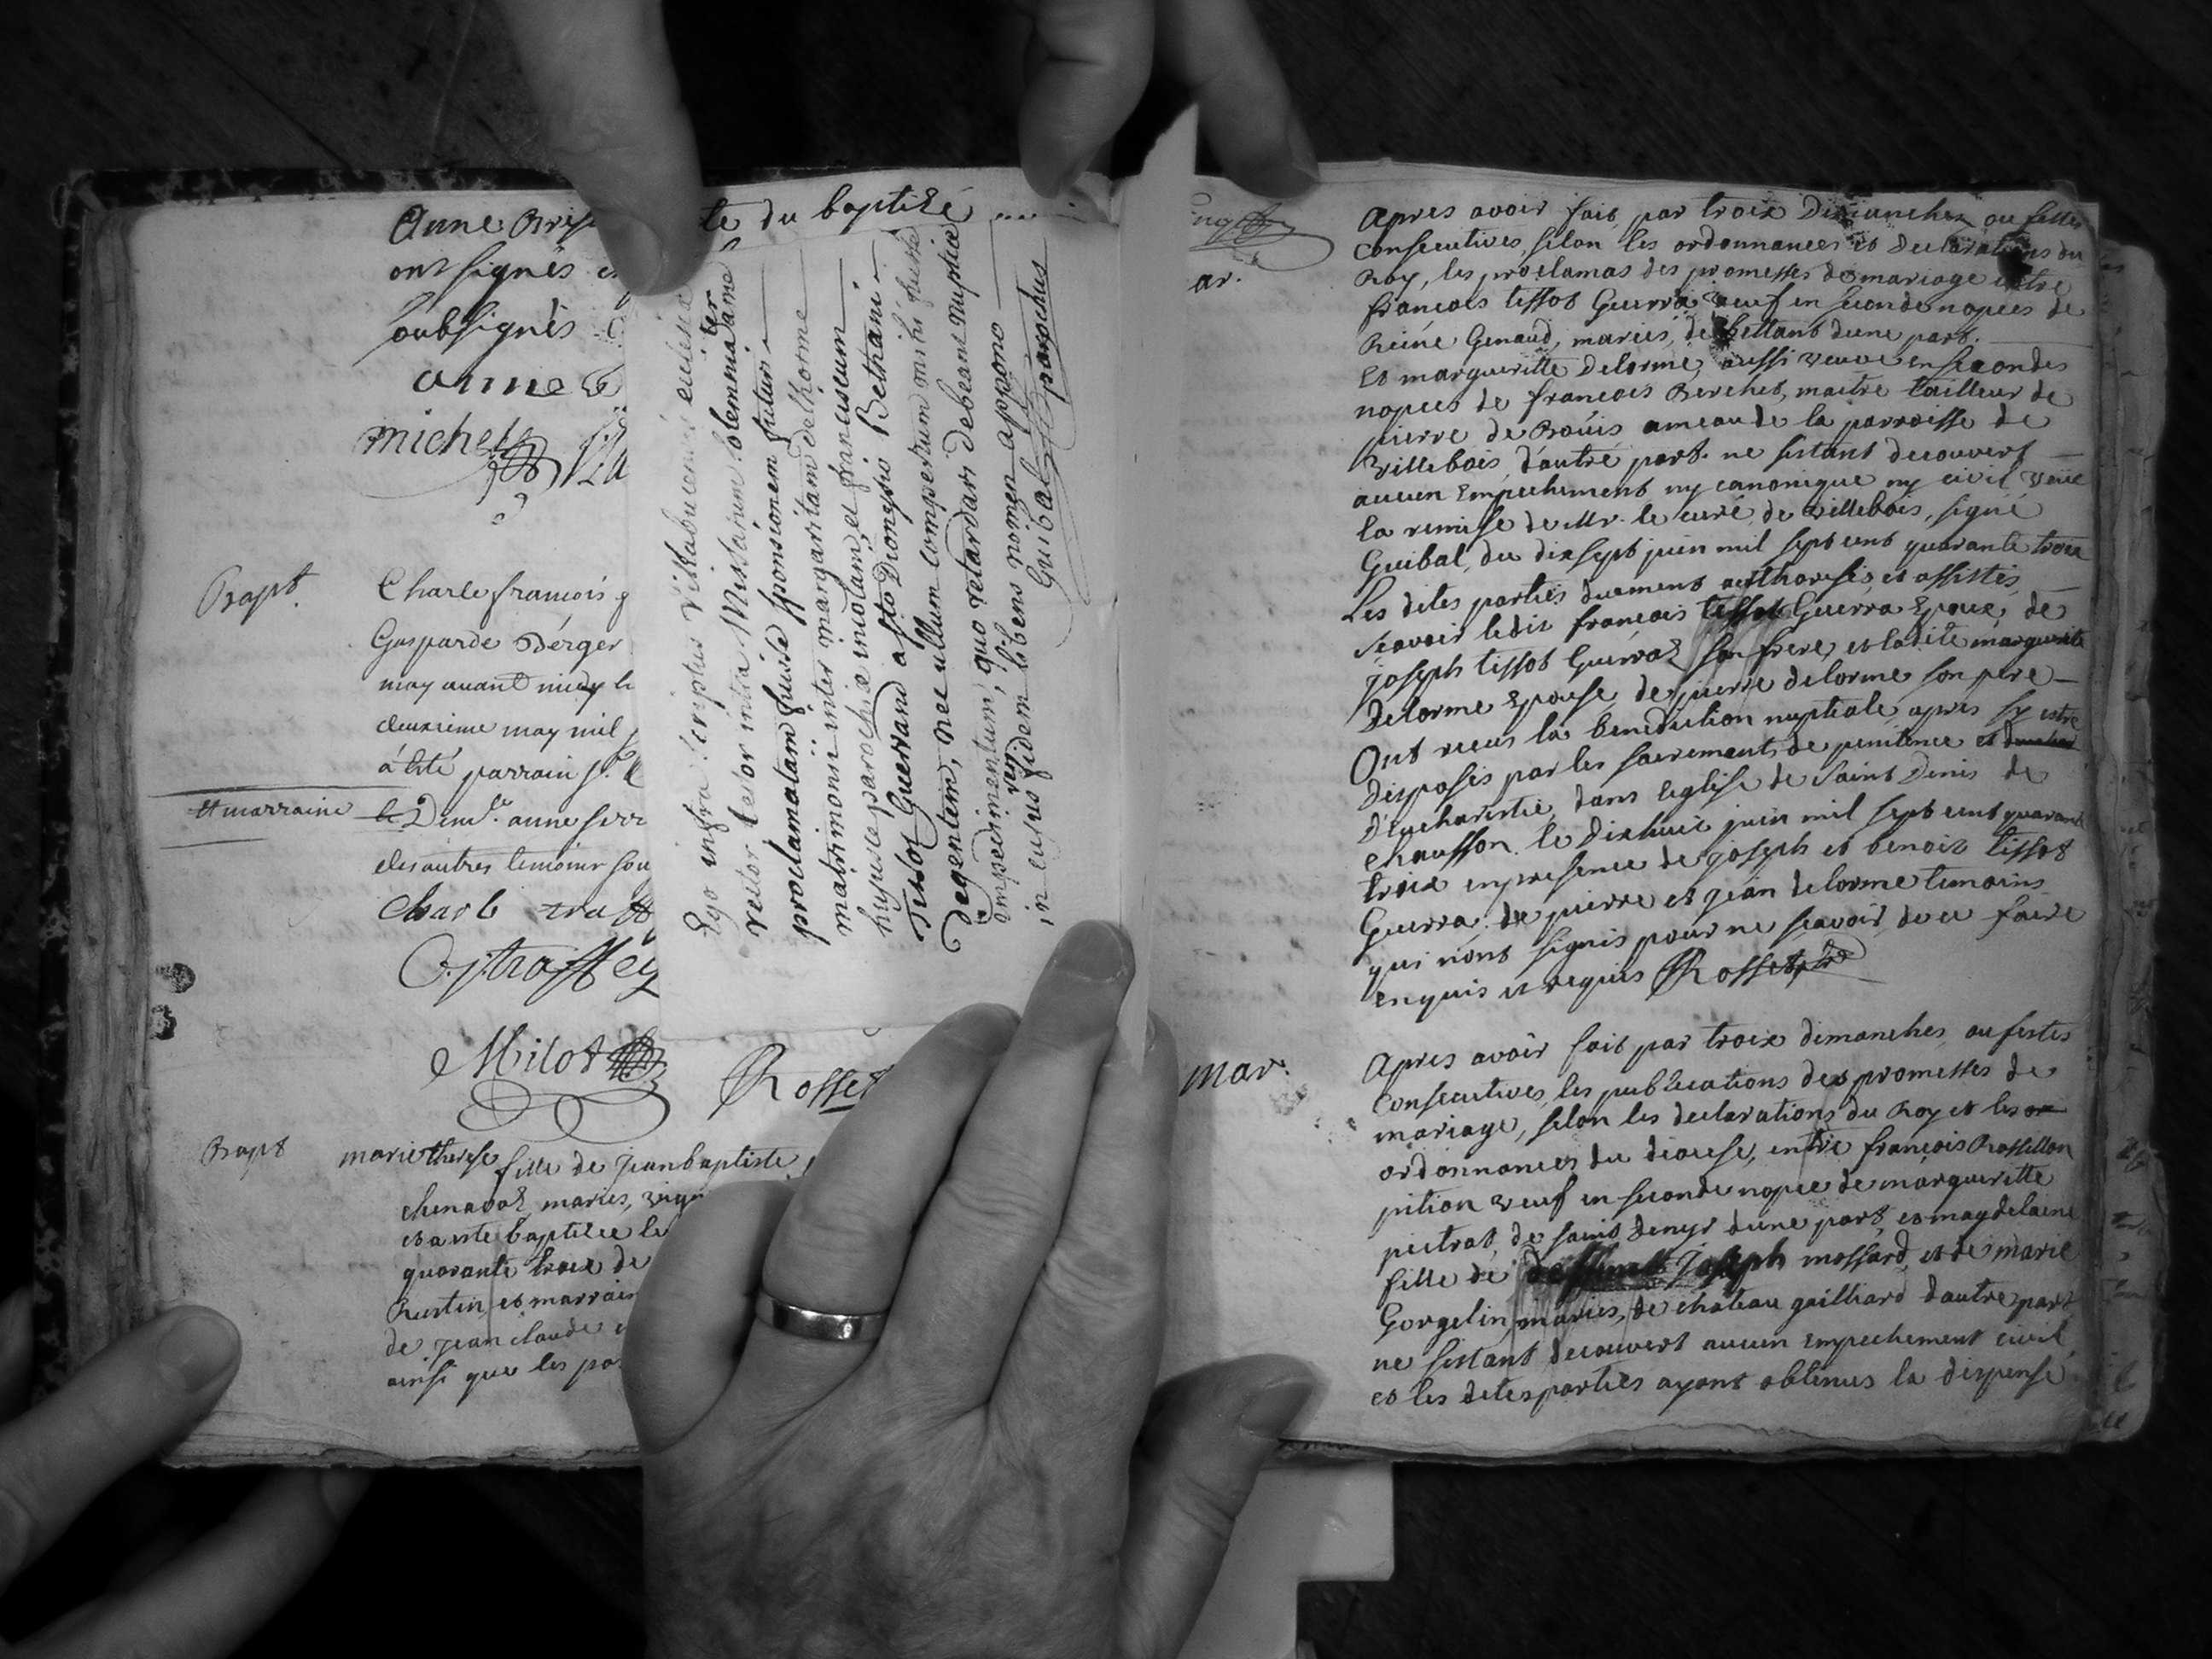 Anne
te du baptizé
ont signés
soubsignés
anne
michel
Bapt.
Charle francois
Gasparde Berger
may avant midy
deuxieme may mil
a été parrain
et marraine
Demlle. anne
des autres temoins sou
Charle
Milot
Rosset
Bapt
marie therese fille de Jean baptiste
chenavaz, maries,
et a este baptizee le
quarante trois de
Rustin, et marrain
de jean claude
ainsi que les
Ego infra scriptus Villabucensis ecclesiæ
rector testor intra Missarum solemnia ter
proclamatam fuisse sponsionem futuri
matrimonii inter margaritam delhorme
hujusce parochiæ incolam, et franciscum
Tissot Guerraud a sto Dionysio Bethani
degentem, nec ullum compertum mihi fuisse
impedimentum, quo retardari debeant nuptiæ
in cujus rei fidem libens nomen appono
Guibal parochus
ar.
Apres avoir fait par troix Dimanches ou festes
consecutives, selon les ordonnances et declarations du
Roy, les proclamas des promesses de mariage entre
francois tissot Guerra, veuf en seconde nopces de
Reine Genaud, mariés, de bettant dune part.
Et margueritte Delorme, aussi veuve en secondes
nopces de francois Berchet, maitre tailleur de
pierre de Bouis ameau de la parroisse de
Villebois, dautre part. ne sestant decouvert
aucun Empechement ny canonique ny civil, veüe
la remise de Mr. le curé de villebois, signé
Guibal, du dixsept juin mil sept cent quarante troix
Les dites parties duement authorisés et assistés,
scavoir ledit francois tissot Guerra Epoux, de
joseph tissot Guerraz son frere, et ladite margueritte
Delorme Epouse, de pierre delorme son pere
Ont receus la benediction nuptiale, apres sy estre
Disposés par les sacrements de penitence et
D'eucharistie, dans leglise de Saint Denis de
Chausson. le Dixhuit juin mil sept cent quarante
troix en presence de joseph et benoit tissot
Guerra, de pierre et jean delorme temoins
qui n'ont signés pour ne scavoir de ce faire
enquis et requis Rosset
mar.
Apres avoir fait par troix dimanches ou festes
consecutives, les publications des promesses de
mariage, selon les declarations du Roy et les
ordonnances du diocese, entre francois Rossellon
pition veuf en seconde nopce de margueritte
pictrat, de saint denys dune part, et magdelaine
fille de deffunt Joseph mossard, et de marie
Gorgelin, mariés, de chateau gailliard dautre part
ne sestant decouvert aucun Empechement civil,
et les dites parties ayant obtenus la dispense